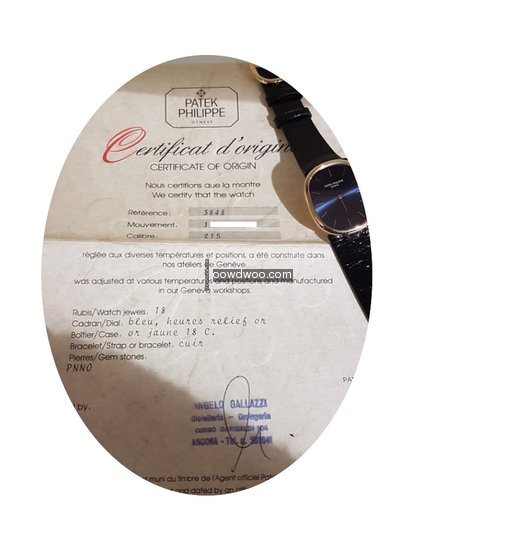 PATEK
PHILIPPE
GENEVE
Certificat d'origin
CERTIFICATE OF ORIGIN
Nous certifions que la montre
We certify that the watch
Référence: 3848
Mouvement: 1
Calibre: 215
PATEK PHILIPPE
réglée aux diverses températures et positions, a été construite dans
nos ateliers de Genève.
oowdwoo.com
was adjusted at various temperatures and positions and manufactured
in our Geneva workshops.
Rubis/Watch jewels: 18
Cadran/Dial: bleu, heures relief or
Boîtier/Case: or jaune 18 C.
Bracelet/Strap or bracelet: cuir
Pierres/Gem stones:
PNNO
PA
by:
ANGELO GALLAZZI
Gioielleria - Orologeria
CORSO GARIBALDI
ANCONA - Tel. n.
muni du timbre de l'Agent officiel Pat
and dated by an off